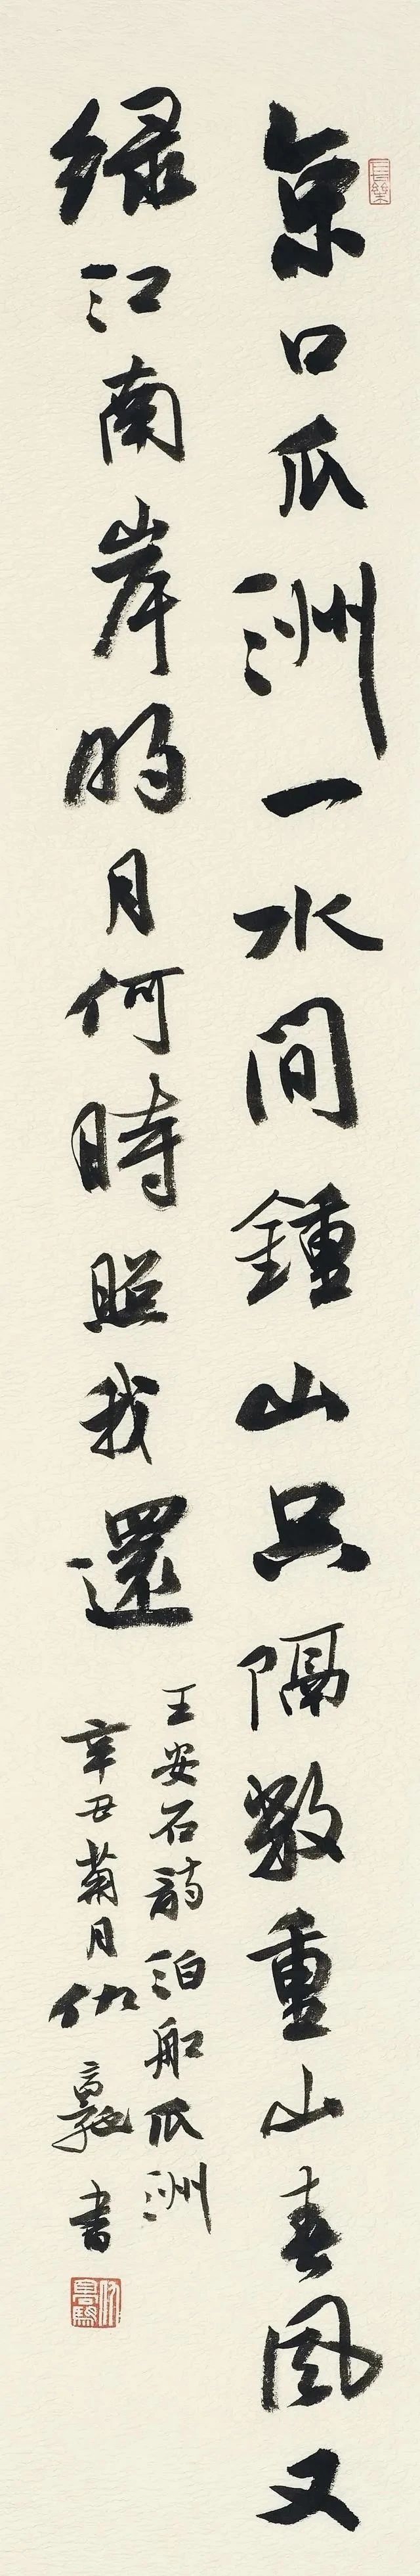 京口瓜洲一水間鍾山只隔數重山春風又
绿江南岸明月何時照我還
王安石詩泊船瓜洲
辛丑菊月仇書
長樂